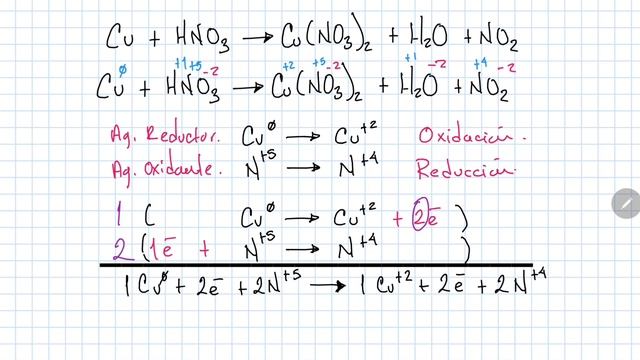 Cu + HNO₃ → Cu(NO₃)₂ + H₂O + NO₂
Cu⁰ + H⁺¹N⁺⁵O₃⁻² → Cu⁺²(N⁺⁵O₃⁻²)₂ + H₂⁺¹O⁻² + N⁺⁴O₂⁻²
Ag. Reductor. Cu⁰ → Cu⁺² Oxidación.
Ag. Oxidante. N⁺⁵ → N⁺⁴ Reducción.
1 ( Cu⁰ → Cu⁺² + 2e⁻ )
2 ( 1e⁻ + N⁺⁵ → N⁺⁴ )
1Cu⁰ + 2e⁻ + 2N⁺⁵ → 1Cu⁺² + 2e⁻ + 2N⁺⁴